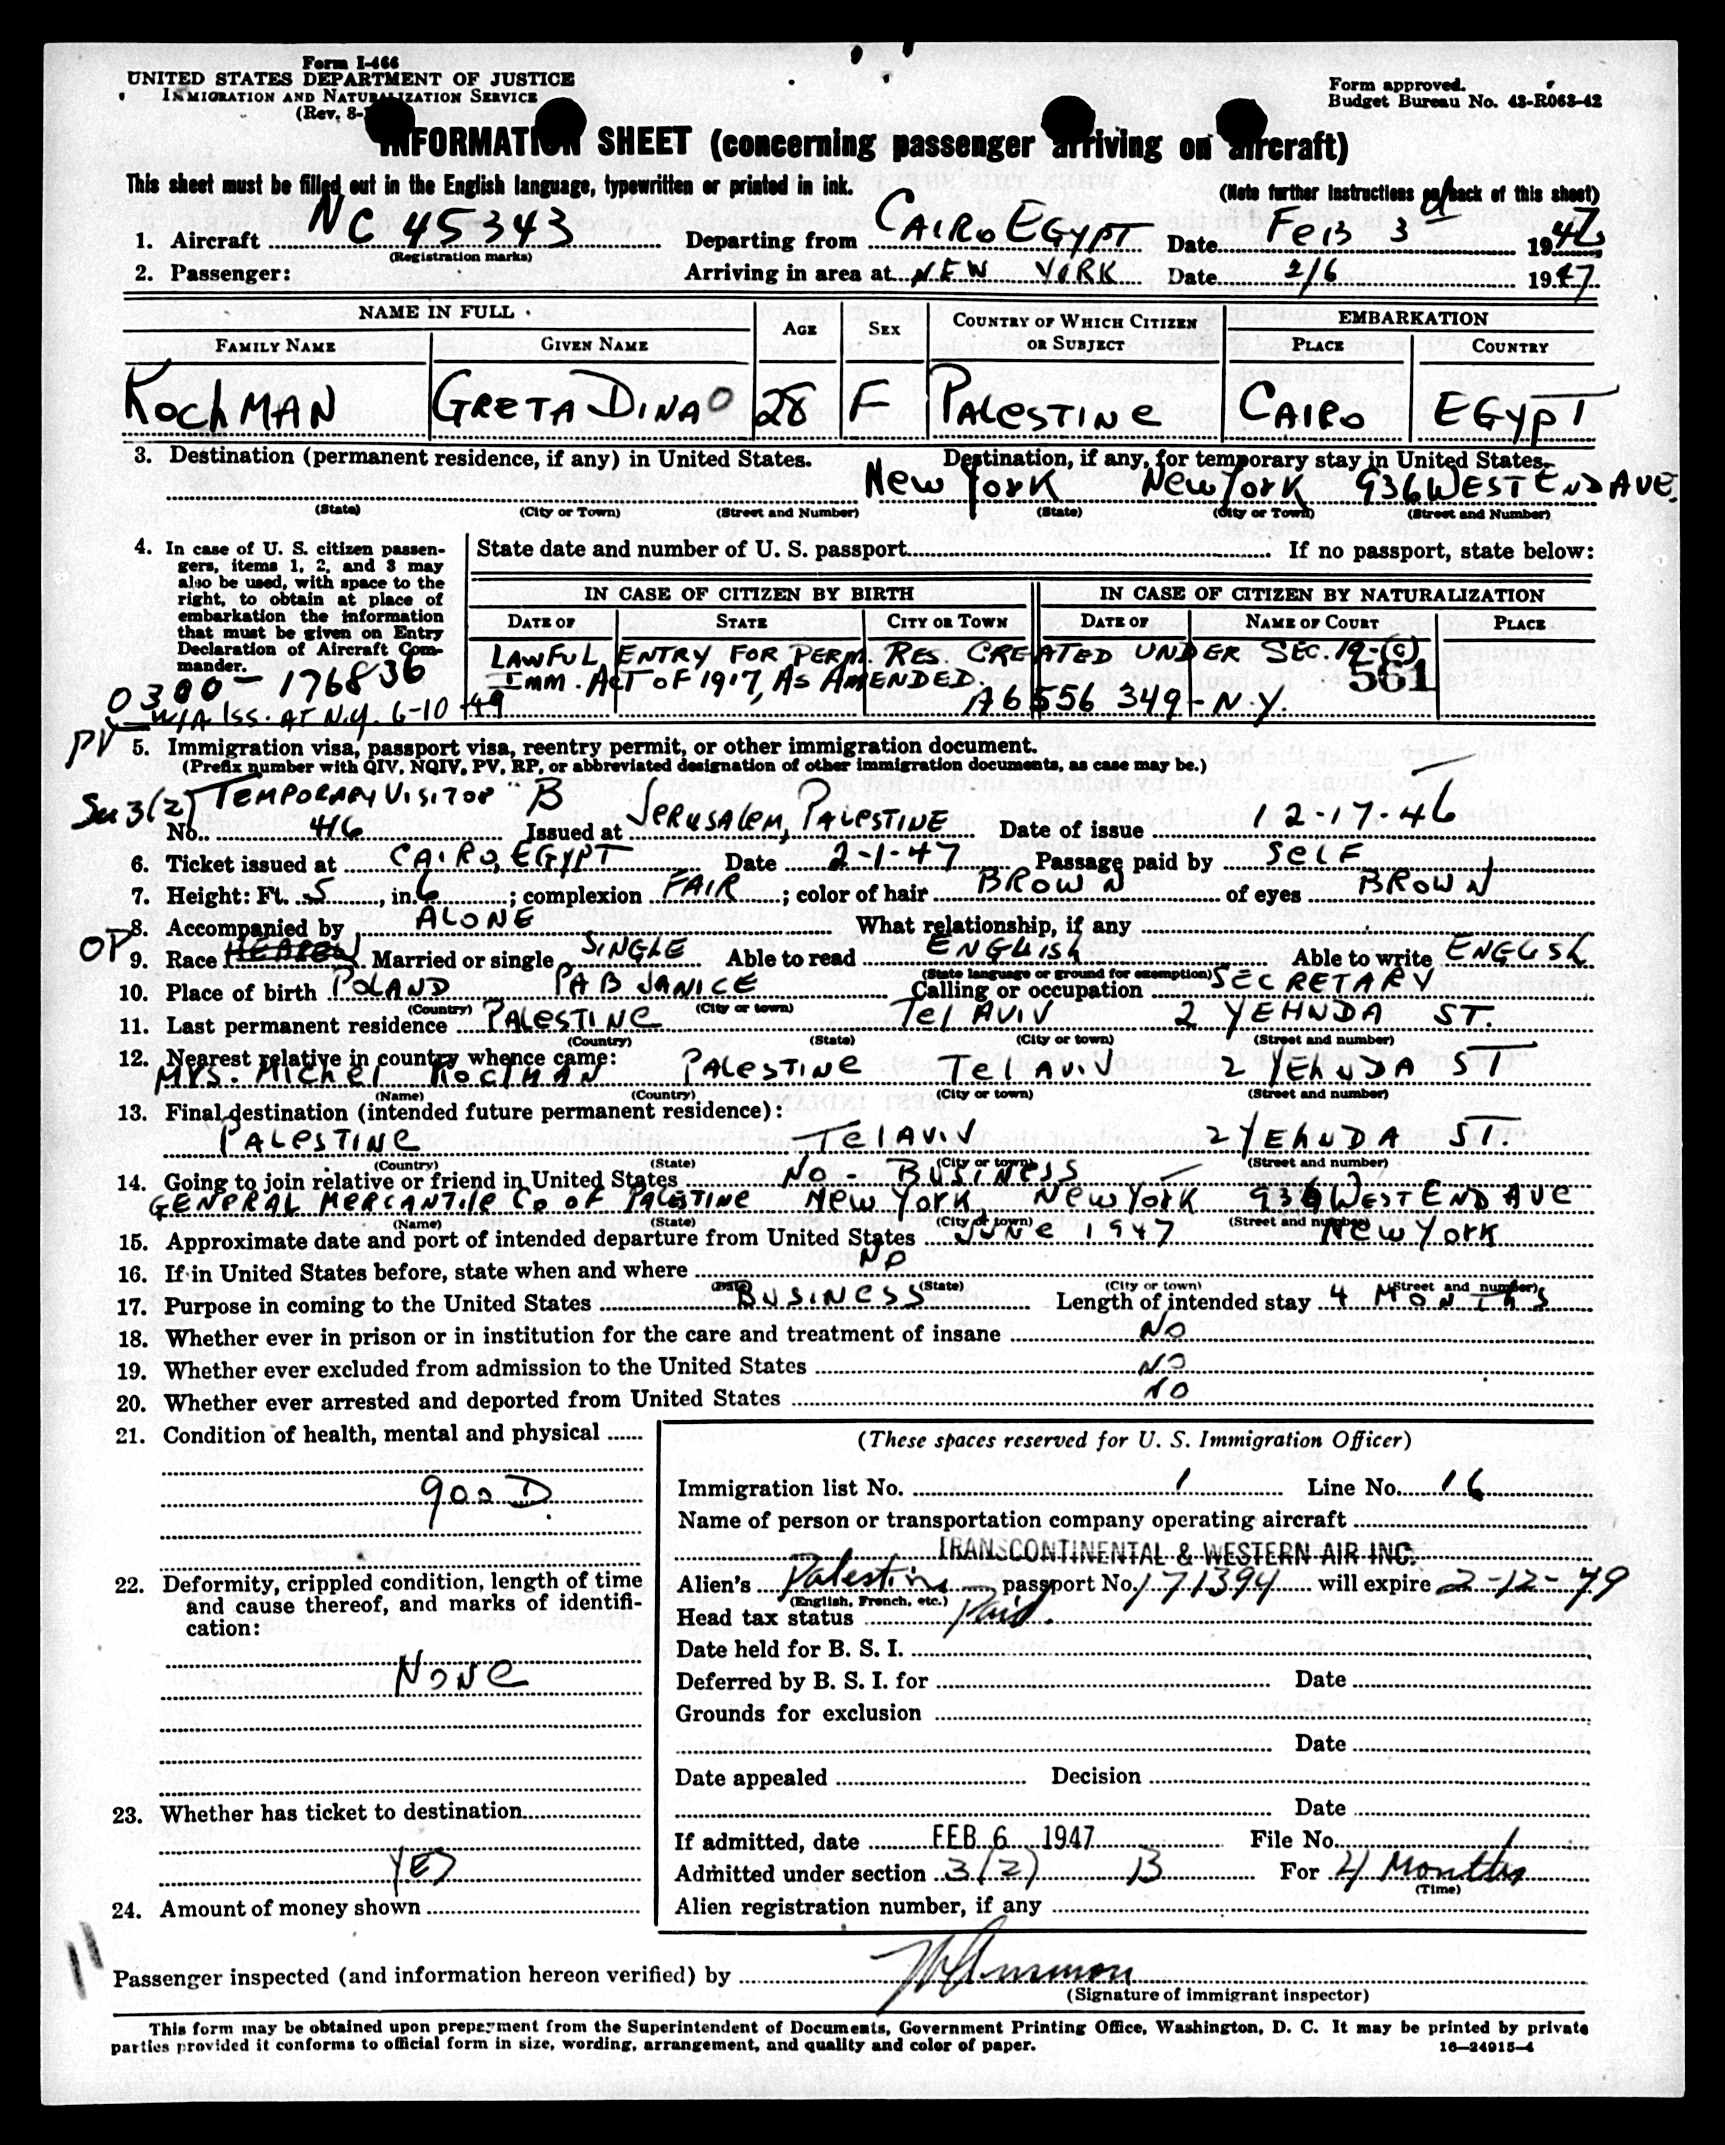 Form I-466
UNITED STATES DEPARTMENT OF JUSTICE
IMMIGRATION AND NATURALIZATION SERVICE
(Rev. 8-
Form approved.
Budget Bureau No. 43-R063-42
INFORMATION SHEET (concerning passenger arriving on aircraft)
This sheet must be filled out in the English language, typewritten or printed in ink. (Note further instructions on back of this sheet)
1. Aircraft NC 45343 Departing from CAIRO EGYPT Date FEB 3d 1947
(Registration marks)
2. Passenger: Arriving in area at NEW YORK Date 2/6 1947
NAME IN FULL AGE SEX COUNTRY OF WHICH CITIZEN OR SUBJECT EMBARKATION
FAMILY NAME GIVEN NAME PLACE COUNTRY
KOCHMAN GRETA DINA 0 28 F PALESTINE CAIRO EGYPT
3. Destination (permanent residence, if any) in United States. Destination, if any, for temporary stay in United States.
New York New York 936 WEST END AVE.
(State) (City or Town) (Street and Number) (State) (City or Town) (Street and Number)
4. In case of U. S. citizen passengers, items 1, 2, and 3 may also be used, with space to the right, to obtain at place of embarkation the information that must be given on Entry Declaration of Aircraft Commander.
State date and number of U. S. passport If no passport, state below:
IN CASE OF CITIZEN BY BIRTH IN CASE OF CITIZEN BY NATURALIZATION
DATE OF STATE CITY OR TOWN DATE OF NAME OF COURT PLACE
LAWFUL ENTRY FOR PERM. RES. CREATED UNDER SEC. 19-(C)
IMM. ACT OF 1917, AS AMENDED. 561
0300-176836
A6 556 349 - N.Y.
W/A ISS. AT N.Y. 6-10-49
PV
5. Immigration visa, passport visa, reentry permit, or other immigration document.
(Prefix number with QIV, NQIV, PV, RP, or abbreviated designation of other immigration documents, as case may be.)
Sec 3(2) TEMPORARY VISITOR "B
No. 416 Issued at JERUSALEM, PALESTINE Date of issue 12-17-46
6. Ticket issued at CAIRO, EGYPT Date 2-1-47 Passage paid by SELF
7. Height: Ft. 5, in. 6; complexion FAIR; color of hair BROWN of eyes BROWN
8. Accompanied by ALONE What relationship, if any
OP
9. Race HEBREW Married or single SINGLE Able to read ENGLISH Able to write ENGLISH
(State language or ground for exemption)
10. Place of birth POLAND PABJANICE Calling or occupation SECRETARY
(Country) (City or town)
11. Last permanent residence PALESTINE Tel AVIV 2 YEHUDA ST.
(Country) (State) (City or town) (Street and number)
12. Nearest relative in country whence came:
MRS. MICHEL KOCHMAN PALESTINE Tel AVIV 2 YEHUDA ST
(Name) (Country) (City or town) (Street and number)
13. Final destination (intended future permanent residence):
PALESTINE Tel AVIV 2 YEHUDA ST.
(Country) (State) (City or town) (Street and number)
14. Going to join relative or friend in United States NO - BUSINESS
GENERAL MERCANTILE CO OF PALESTINE New York, New York 936 WEST END AVE
(Name) (State) (City or town) (Street and number)
15. Approximate date and port of intended departure from United States JUNE 1947 New York
16. If in United States before, state when and where NO
(Date) (State) (City or town) (Street and number)
17. Purpose in coming to the United States BUSINESS Length of intended stay 4 MONTHS
18. Whether ever in prison or in institution for the care and treatment of insane NO
19. Whether ever excluded from admission to the United States NO
20. Whether ever arrested and deported from United States NO
21. Condition of health, mental and physical
GOOD.
22. Deformity, crippled condition, length of time and cause thereof, and marks of identification:
NONE
23. Whether has ticket to destination
YES
24. Amount of money shown
(These spaces reserved for U. S. Immigration Officer)
Immigration list No. 1 Line No. 16
Name of person or transportation company operating aircraft
TRANSCONTINENTAL & WESTERN AIR INC.
Alien's Palestine passport No. 171394 will expire 2-12-49
(English, French, etc.)
Head tax status Paid.
Date held for B. S. I.
Deferred by B. S. I. for Date
Grounds for exclusion
Date
Date appealed Decision
Date
If admitted, date FEB 6 1947 File No.
Admitted under section 3(2) B For 4 Months
(Time)
Alien registration number, if any
11
Passenger inspected (and information hereon verified) by
(Signature of immigrant inspector)
This form may be obtained upon prepayment from the Superintendent of Documents, Government Printing Office, Washington, D. C. It may be printed by private
parties provided it conforms to official form in size, wording, arrangement, and quality and color of paper. 16—24915-4